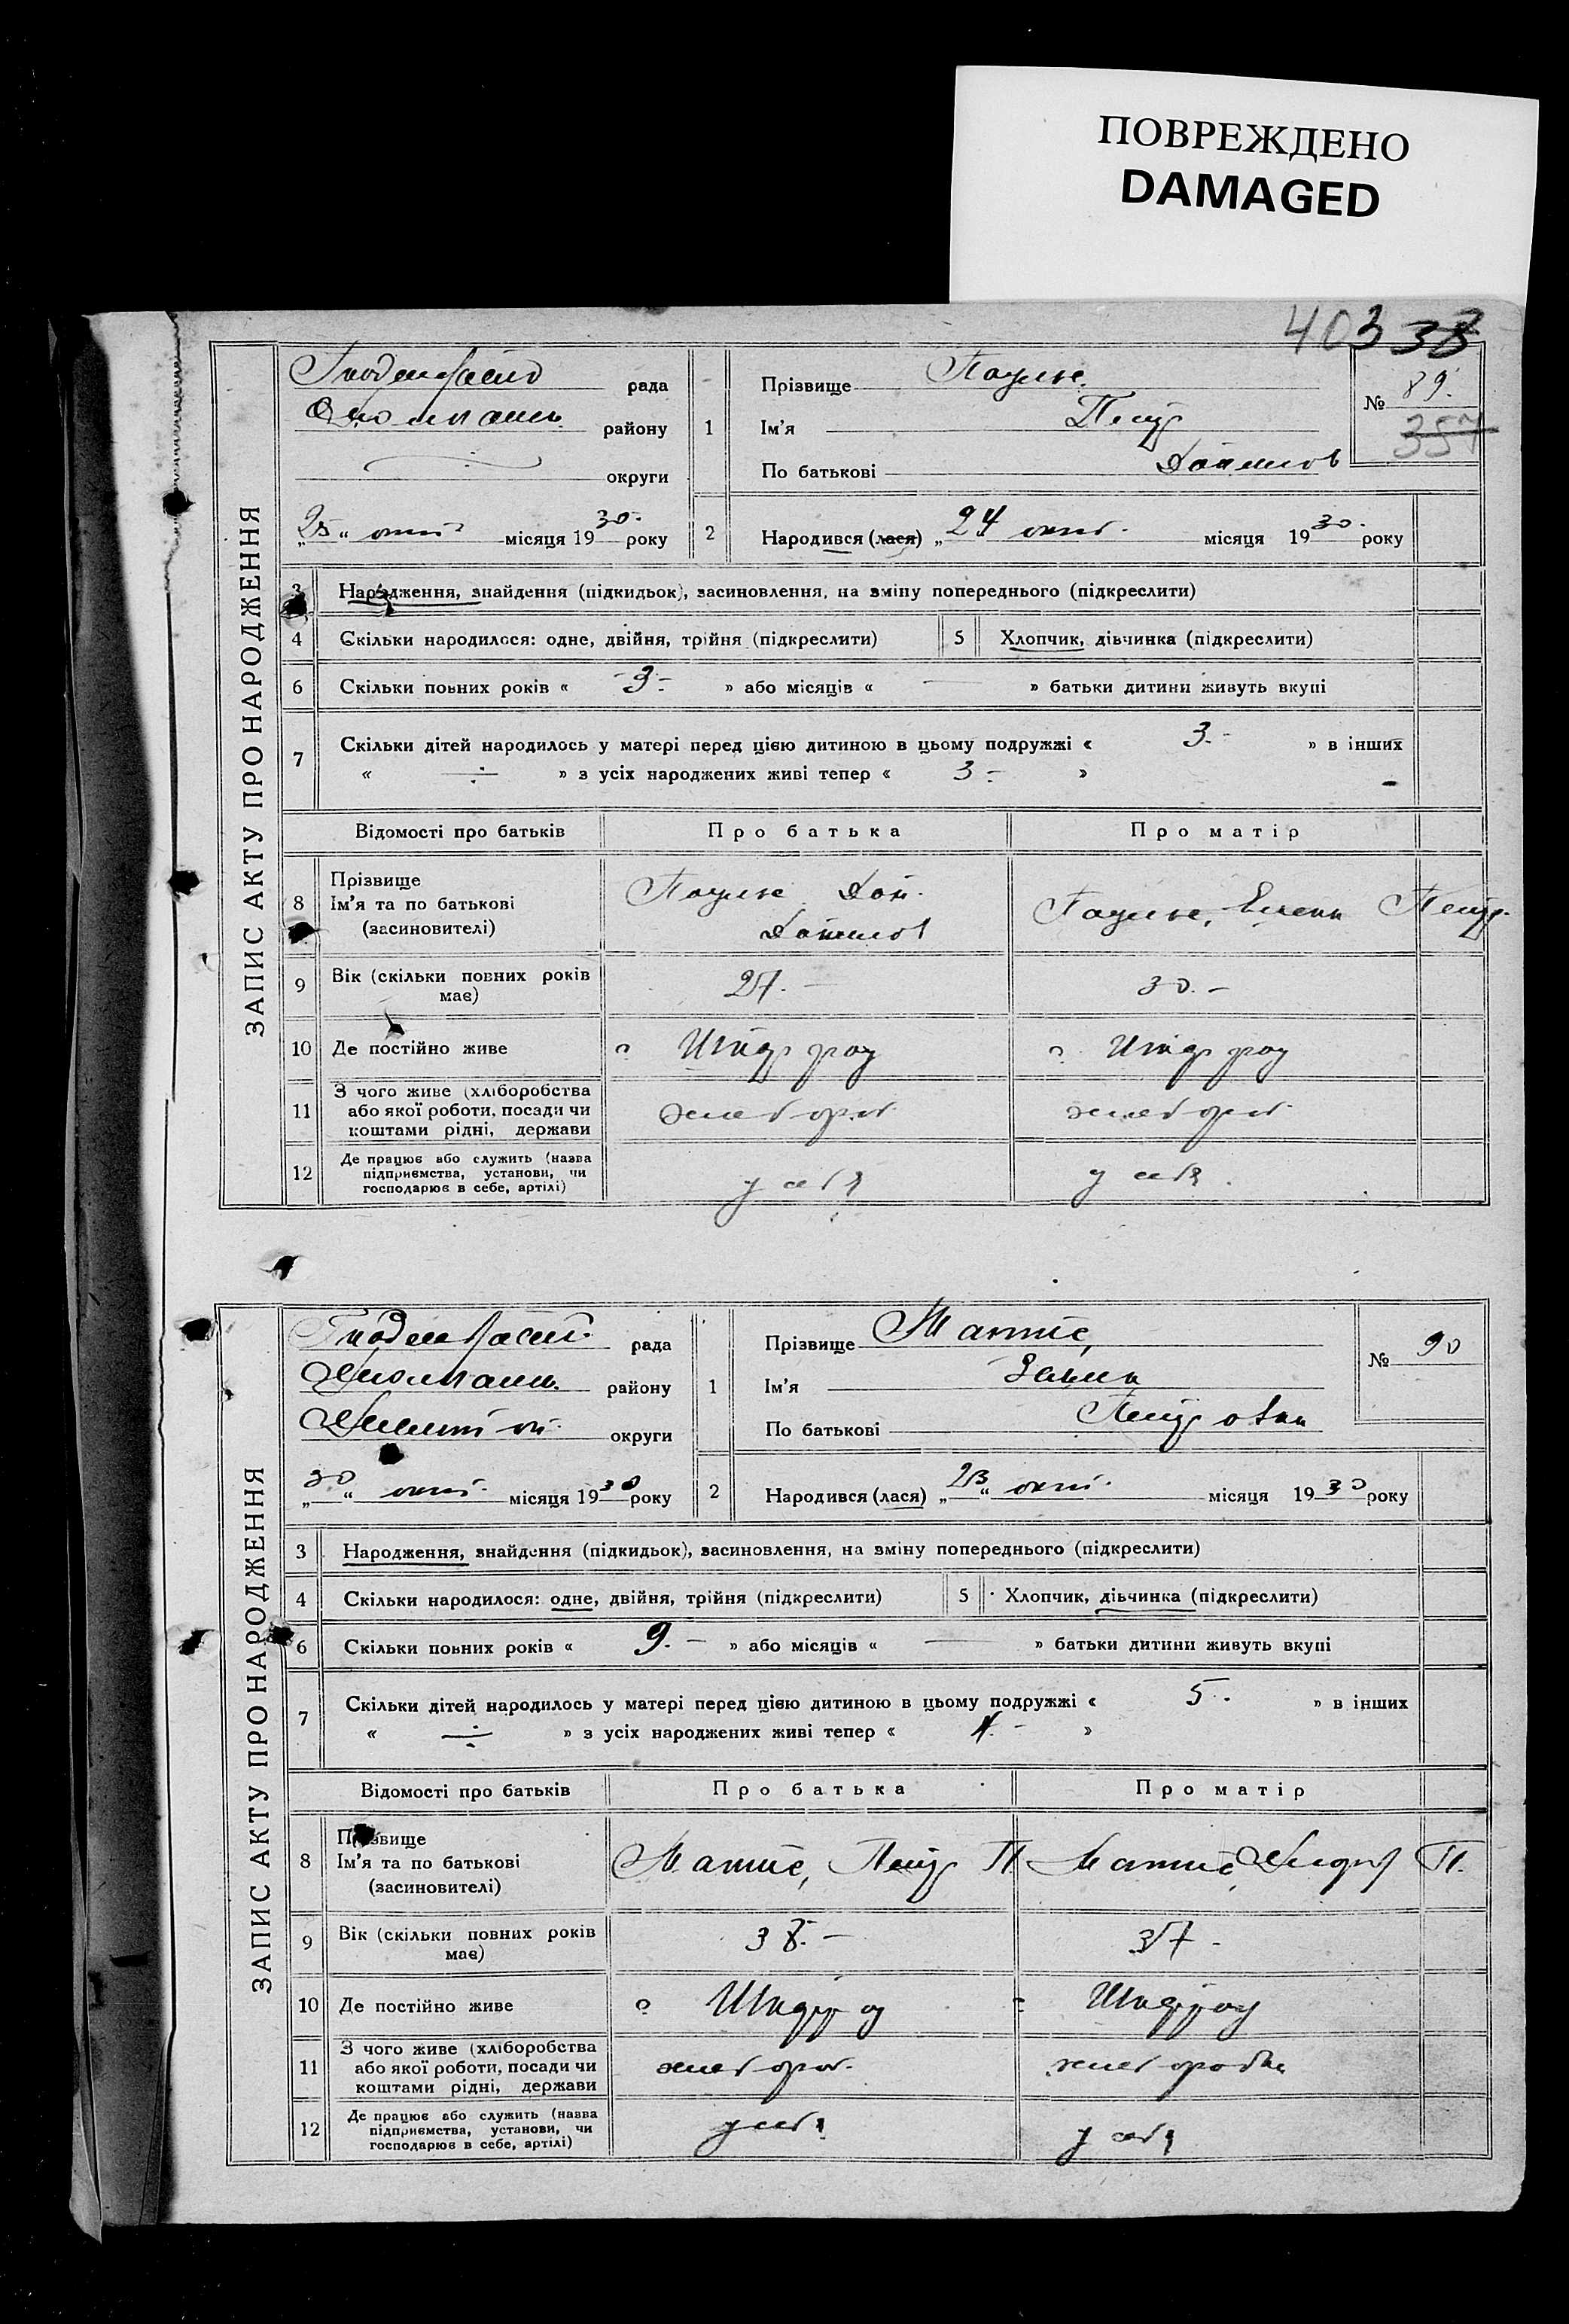 ПОВРЕЖДЕНО
DAMAGED
403 38
ЗАПИС АКТУ ПРО НАРОДЖЕННЯ
рада
району
округи
„25“ окт місяця 1930 року
1
Прізвище
Ім’я Петр
По батькові
№ 89.
357
2
Народився (лася) „24 окт. місяця 1930. року
3
Народження, знайдення (підкидьок), засиновлення, на зміну попереднього (підкреслити)
4
Скільки народилося: одне, двійня, трійня (підкреслити)
5
Хлопчик, дівчинка (підкреслити)
6
Скільки повних років « 3 » або місяців « — » батьки дитини живуть вкупі
7
Скільки дітей народилось у матері перед цією дитиною в цьому подружжі « 3. » в інших
« ÷ » з усіх народжених живі тепер « 3 »
Відомості про батьків
Про батька
Про матір
8
Прізвище
Ім’я та по батькові
(засиновителі)
Елена Петр.
9
Вік (скільки повних років
має)
27. –
30. –
10
Де постійно живе
11
З чого живе (хліборобства
або якої роботи, посади чи
коштами рідні, держави
12
Де працює або служить (назва
підприємства, установи, чи
господарює в себе, артілі)
у себя
у себя
ЗАПИС АКТУ ПРО НАРОДЖЕННЯ
рада
району
округи
„30“ окт. місяця 1930 року
1
Прізвище Матис,
Ім’я
По батькові Петровна
№ 90
2
Народився (лася) „23“ окт. місяця 1930 року
3
Народження, знайдення (підкидьок), засиновлення, на зміну попереднього (підкреслити)
4
Скільки народилося: одне, двійня, трійня (підкреслити)
5
Хлопчик, дівчинка (підкреслити)
6
Скільки повних років « 9. – » або місяців « — » батьки дитини живуть вкупі
7
Скільки дітей народилось у матері перед цією дитиною в цьому подружжі « 5. » в інших
« ÷ » з усіх народжених живі тепер « 4. – »
Відомості про батьків
Про батька
Про матір
8
Прізвище
Ім’я та по батькові
(засиновителі)
Матис, Петр П
Матис, П.
9
Вік (скільки повних років
має)
38. –
37 –
10
Де постійно живе
11
З чого живе (хліборобства
або якої роботи, посади чи
коштами рідні, держави
12
Де працює або служить (назва
підприємства, установи, чи
господарює в себе, артілі)
у себя
у себя